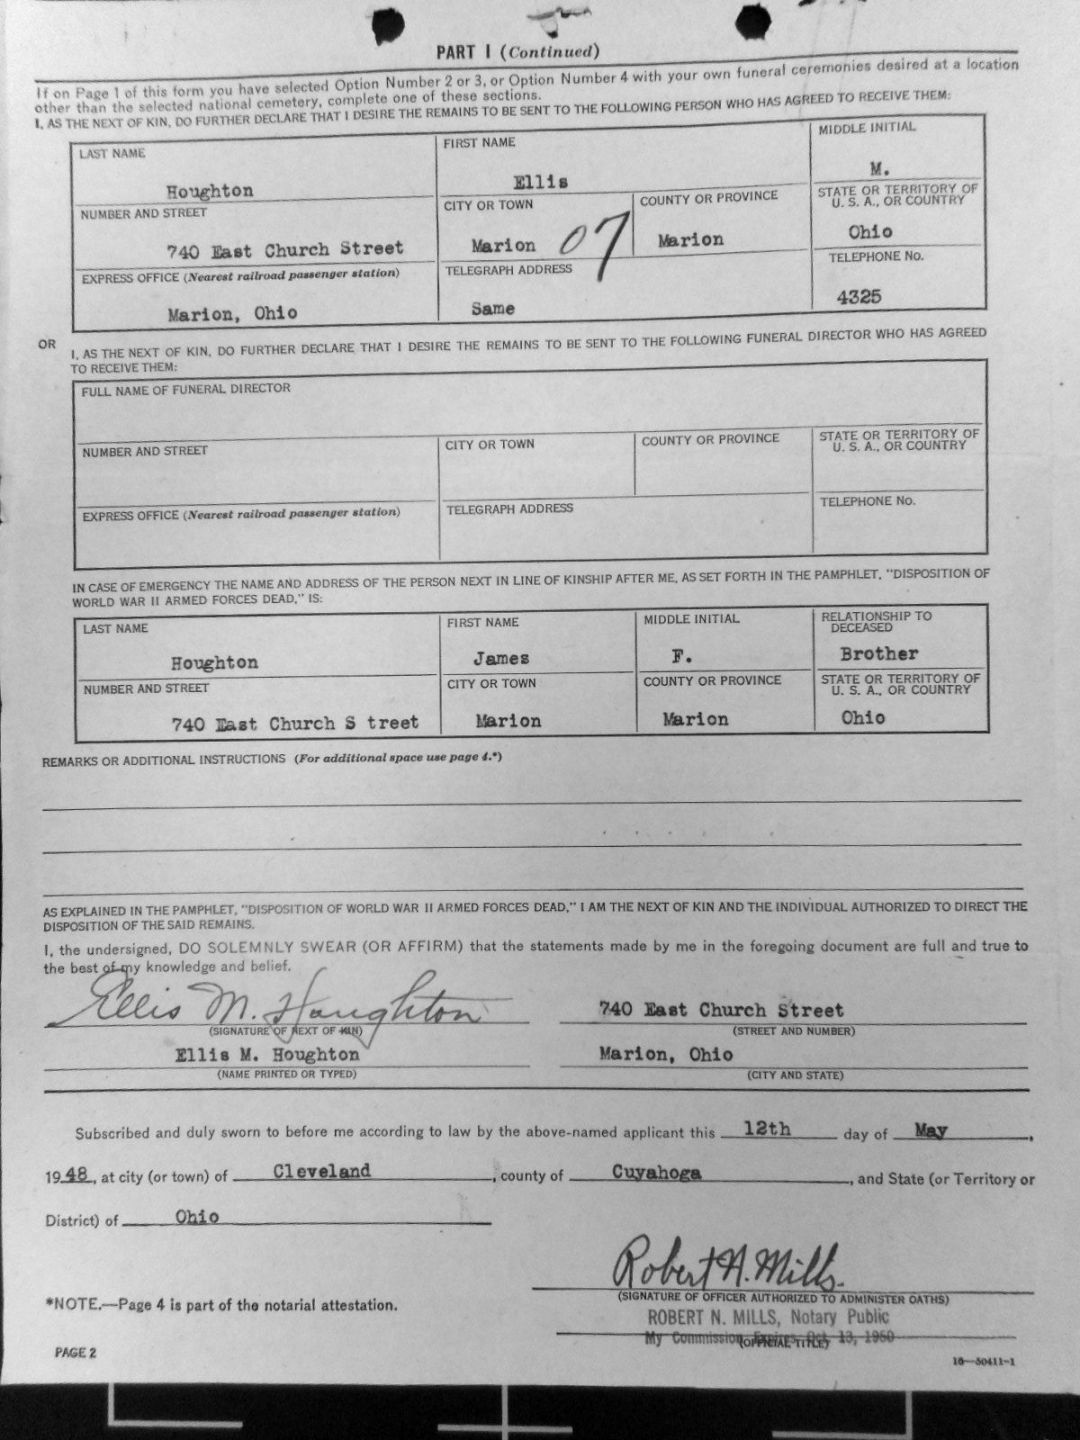 PART I (Continued)
If on Page 1 of this form you have selected Option Number 2 or 3, or Option Number 4 with your own funeral ceremonies desired at a location
other than the selected national cemetery, complete one of these sections.
I, AS THE NEXT OF KIN, DO FURTHER DECLARE THAT I DESIRE THE REMAINS TO BE SENT TO THE FOLLOWING PERSON WHO HAS AGREED TO RECEIVE THEM:
LAST NAME FIRST NAME MIDDLE INITIAL
Houghton Ellis M.
NUMBER AND STREET CITY OR TOWN COUNTY OR PROVINCE STATE OR TERRITORY OF
U. S. A., OR COUNTRY
740 East Church Street Marion 07 Marion Ohio
EXPRESS OFFICE (Nearest railroad passenger station) TELEGRAPH ADDRESS TELEPHONE No.
Marion, Ohio Same 4325
OR I, AS THE NEXT OF KIN, DO FURTHER DECLARE THAT I DESIRE THE REMAINS TO BE SENT TO THE FOLLOWING FUNERAL DIRECTOR WHO HAS AGREED
TO RECEIVE THEM:
FULL NAME OF FUNERAL DIRECTOR
NUMBER AND STREET CITY OR TOWN COUNTY OR PROVINCE STATE OR TERRITORY OF
U. S. A., OR COUNTRY
EXPRESS OFFICE (Nearest railroad passenger station) TELEGRAPH ADDRESS TELEPHONE No.
IN CASE OF EMERGENCY THE NAME AND ADDRESS OF THE PERSON NEXT IN LINE OF KINSHIP AFTER ME, AS SET FORTH IN THE PAMPHLET, "DISPOSITION OF
WORLD WAR II ARMED FORCES DEAD," IS:
LAST NAME FIRST NAME MIDDLE INITIAL RELATIONSHIP TO
DECEASED
Houghton James F. Brother
NUMBER AND STREET CITY OR TOWN COUNTY OR PROVINCE STATE OR TERRITORY OF
U. S. A., OR COUNTRY
740 East Church S treet Marion Marion Ohio
REMARKS OR ADDITIONAL INSTRUCTIONS (For additional space use page 4.*)
AS EXPLAINED IN THE PAMPHLET, "DISPOSITION OF WORLD WAR II ARMED FORCES DEAD," I AM THE NEXT OF KIN AND THE INDIVIDUAL AUTHORIZED TO DIRECT THE
DISPOSITION OF THE SAID REMAINS.
I, the undersigned, DO SOLEMNLY SWEAR (OR AFFIRM) that the statements made by me in the foregoing document are full and true to
the best of my knowledge and belief.
Ellis M. Houghton 740 East Church Street
(SIGNATURE OF NEXT OF KIN) (STREET AND NUMBER)
Ellis M. Houghton Marion, Ohio
(NAME PRINTED OR TYPED) (CITY AND STATE)
Subscribed and duly sworn to before me according to law by the above-named applicant this 12th day of May,
1948, at city (or town) of Cleveland, county of Cuyahoga, and State (or Territory or
District) of Ohio
Robert N. Mills.
(SIGNATURE OF OFFICER AUTHORIZED TO ADMINISTER OATHS)
*NOTE.—Page 4 is part of the notarial attestation.
ROBERT N. MILLS, Notary Public
My Commission Expires Oct. 13, 1950
(OFFICIAL TITLE)
PAGE 2
16—50411-1